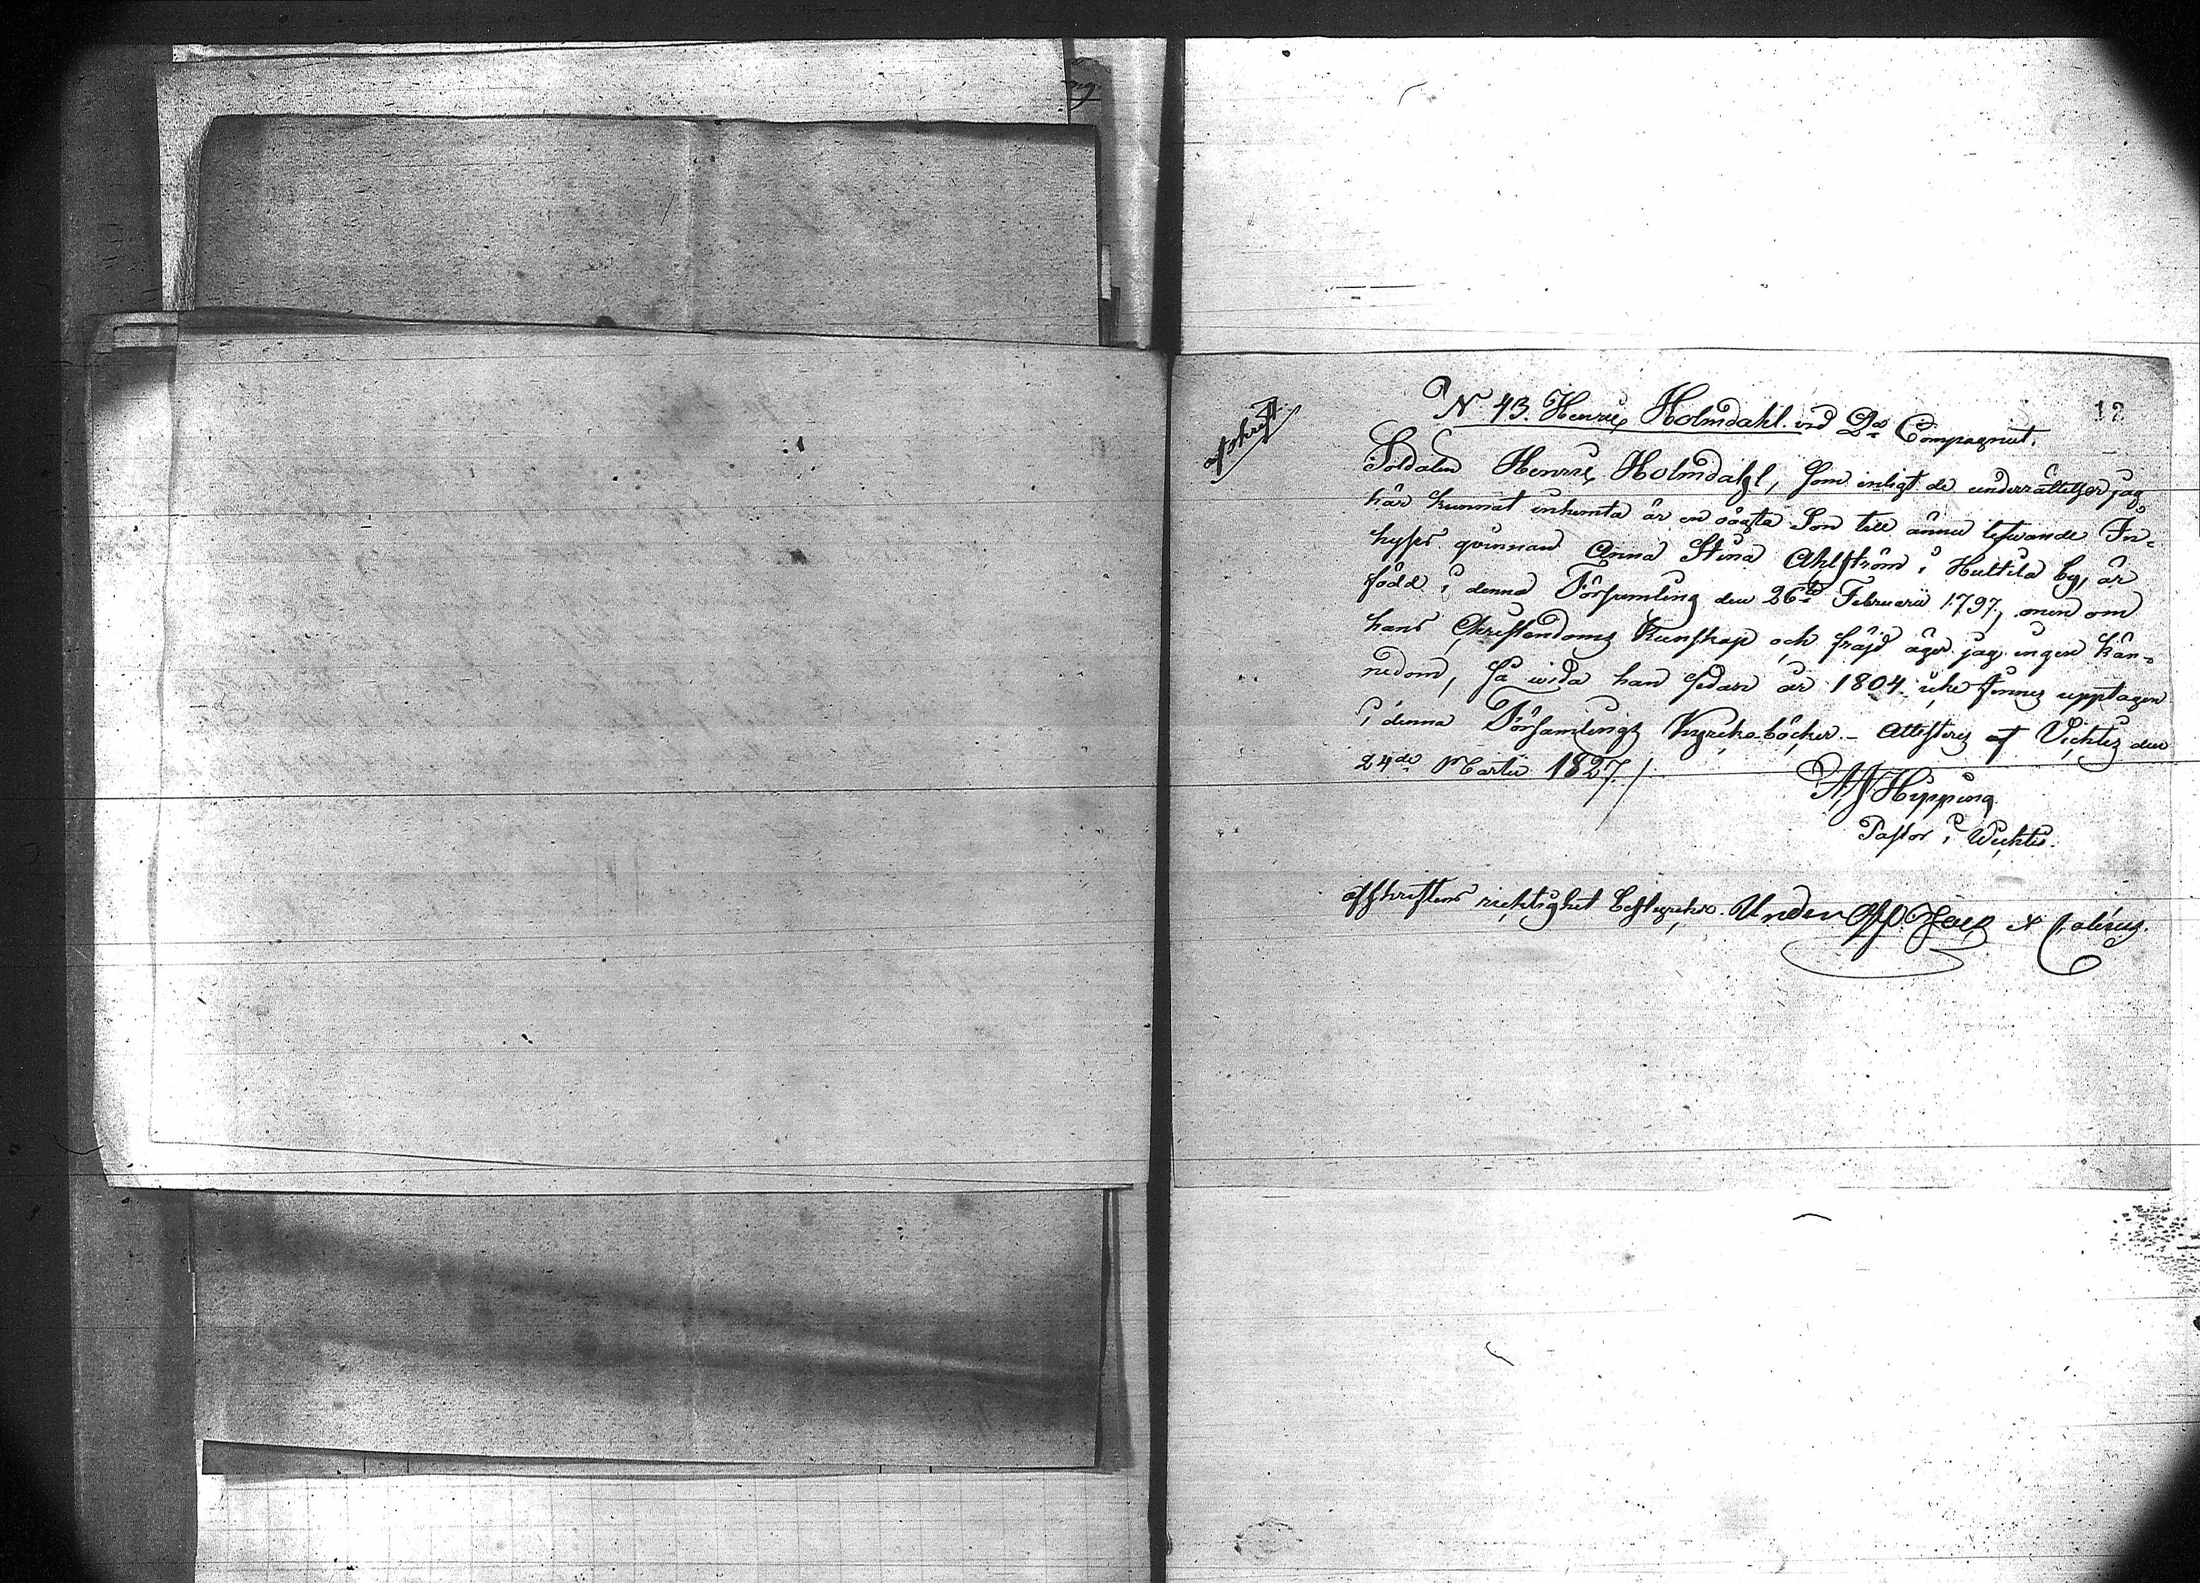 afskrift
12
No 43. Henric Holmdahl vid 2dra Compagniet.
Soldaten Henric Holmdahl, som enligt de underrättelser jag
här kunnat inhemta är en oägta Son till ännu lefwande In-
hyses qvinnan Anna Stina Ahlström i Huttila by, är
född i denna Församling den 26te Februarii 1797, men om
hans Christendoms Kunskap och fräjd äger jag ingen kän-
nedom, så wida han sedan år 1804 icke finnes upptagen
i denna Församlings Kyrckoböcker. – Attesteras af Vichtis den
24de Martii 1827./
A J Hipping.
Pastor i Wichtis.
Afskriftens richtighet bestyrcker. Under